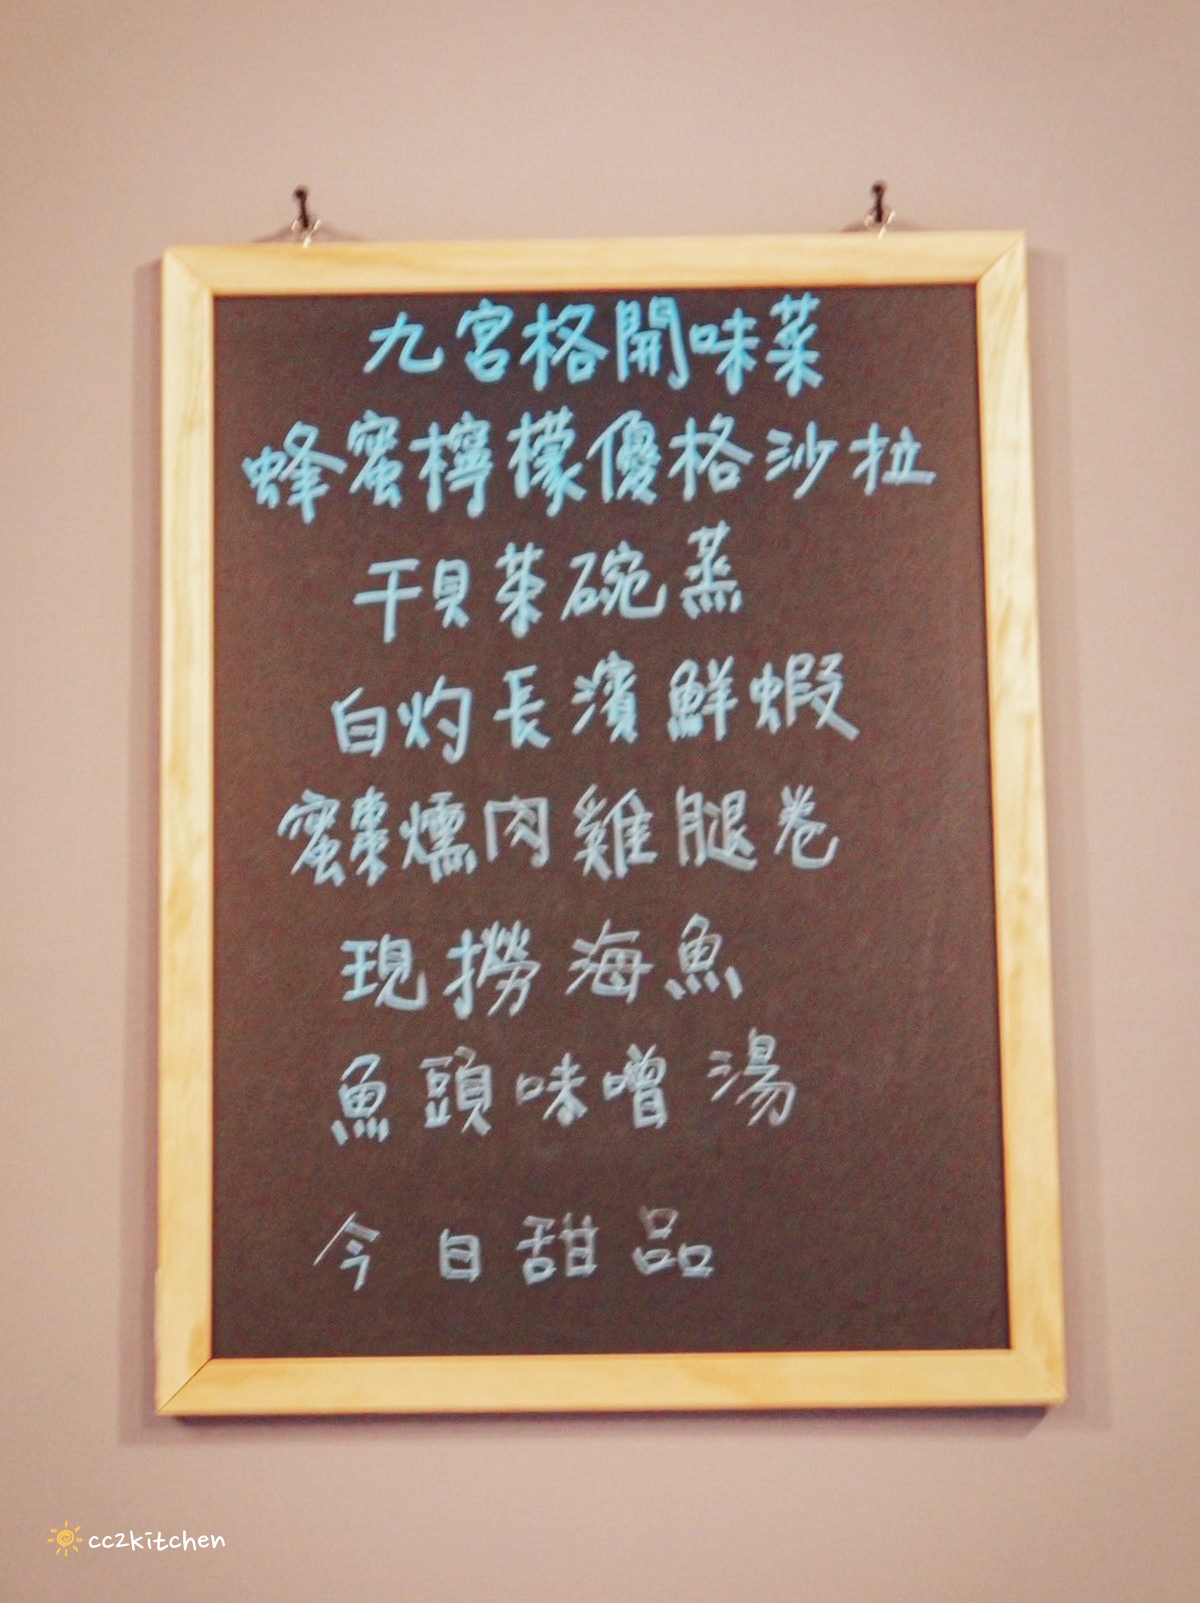 九宮格開味菜
蜂蜜檸檬優格沙拉
干貝茶碗蒸
白灼長濱鮮蝦
蜜棗燻肉雞腿卷
現撈海魚
魚頭味噌湯
今日甜品
cc2kitchen